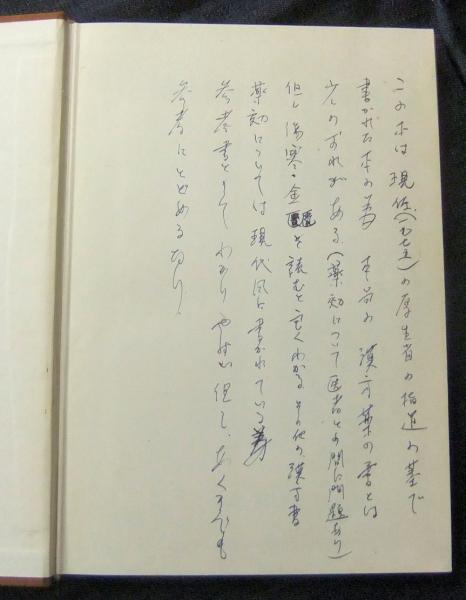 この本は現在(一九七五)の厚生省の指道の基で
書かれた本の為 本当の漢方薬の書とは
少しのずれがある(薬効について医者との間に問題あり)
但し傷寒・金匱を読むと良くわかる その他の漢方書
薬効については現代風に書かれている為
参考書としてわかりやすい 但し、あくまでも
参考にとどめる可り.